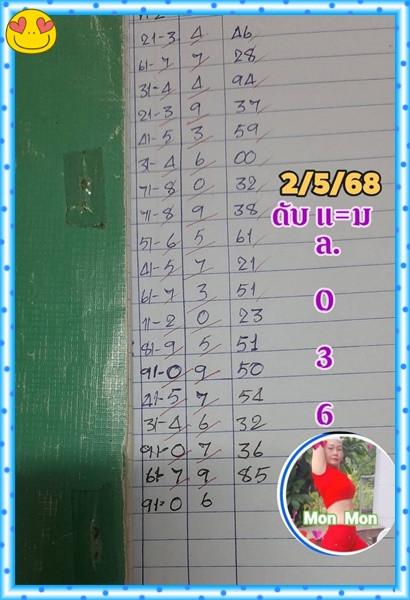 21-3 4 46
61-7 7 28
31-4 4 94
21-3 9 37
41-5 3 59
31-4 6 00
71-8 0 32
71-8 9 38
51-6 5 61
41-5 7 21
61-7 3 51
11-2 0 23
81-9 5 51
91-0 9 50
41-5 7 54
31-4 6 32
91-0 7 36
61-7 9 85
91-0 6
2/5/68
ดับ แ=ม
ล.
0
3
6
Mon Mon